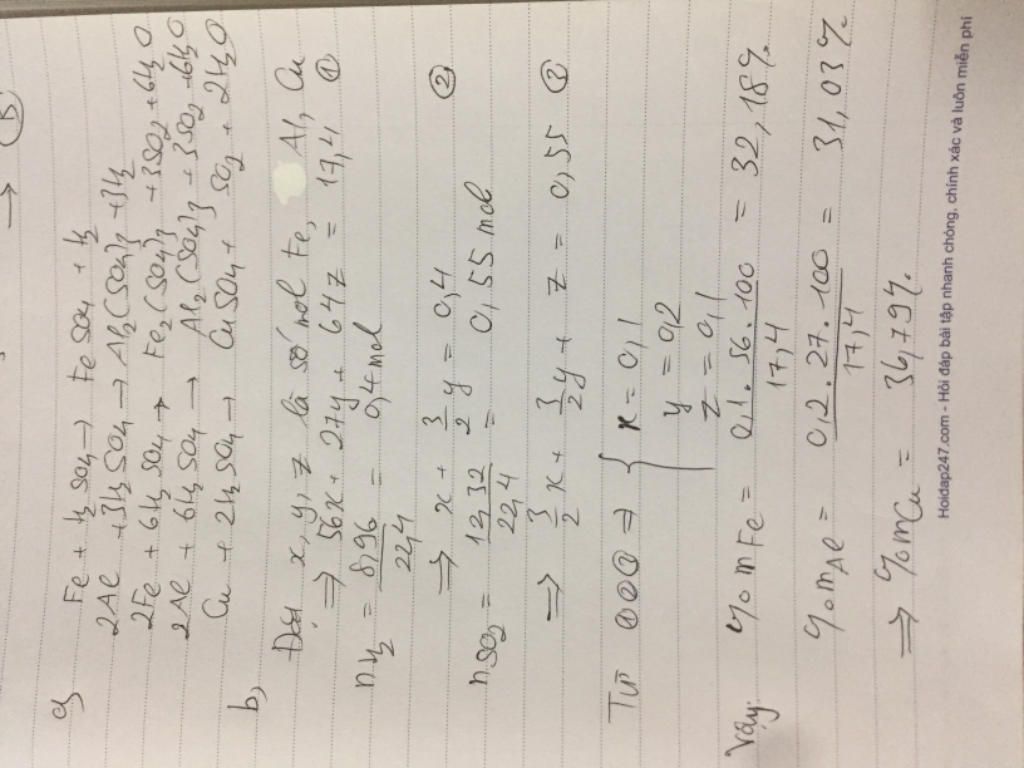 → (B)
a, Fe + H2SO4 → FeSO4 + H2
2Al + 3H2SO4 → Al2(SO4)3 + 3H2
2Fe + 6H2SO4 → Fe2(SO4)3 + 3SO2 + 6H2O
2Al + 6H2SO4 → Al2(SO4)3 + 3SO2 + 6H2O
Cu + 2H2SO4 → CuSO4 + SO2 + 2H2O
b, Đặt x, y, z là số mol Fe, Al, Cu
⇒ 56x + 27y + 64z = 17,4 ①
nH2 = 8,96/22,4 = 0,4 mol
⇒ x + 3/2 y = 0,4 ②
nSO2 = 12,32/22,4 = 0,55 mol
⇒ 3/2 x + 3/2 y + z = 0,55 ③
Từ ①②③ ⇒ { x = 0,1
y = 0,2
z = 0,1
Vậy: %mFe = 0,1.56.100/17,4 = 32,18%.
%mAl = 0,2.27.100/17,4 = 31,03%.
⇒ %mCu = 36,79%.
Hoidap247.com - Hỏi đáp bài tập nhanh chóng, chính xác và luôn miễn phí